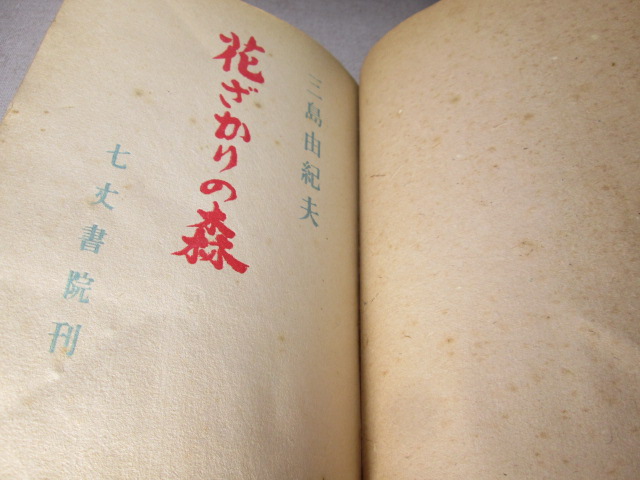 三島由紀夫
花ざかりの森
七丈書院刊